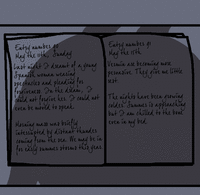 Entry number 90
May the 11th, Sunday
Last night I dreamt of a young
Spanish woman wearing
spectacles and pleading for
forgiveness. In the dream, I
could not forgive her. I could not
even be moved to speak.
Morning mass was briefly
interrupted by distant thunder
coming from the sea. We may be in
for early summer storms this year
Entry number 91
May the 15th
Vermin are becoming more
pervasive. They give me little
rest.
The nights have been growing
colder. Summer is approaching
but I am chilled to the bone
even in my bed.